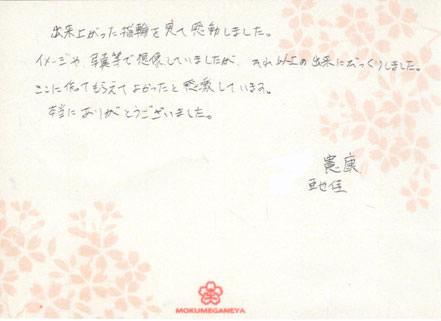 出来上がった指輪を見て感動しました。
イメージや写真等で想像していましたが、それ以上の出来にびっくりしました。
ここに作ってもらえてよかったと感激しています。
本当にありがとうございました。
憲康
亜佳
MOKUMEGANEYA